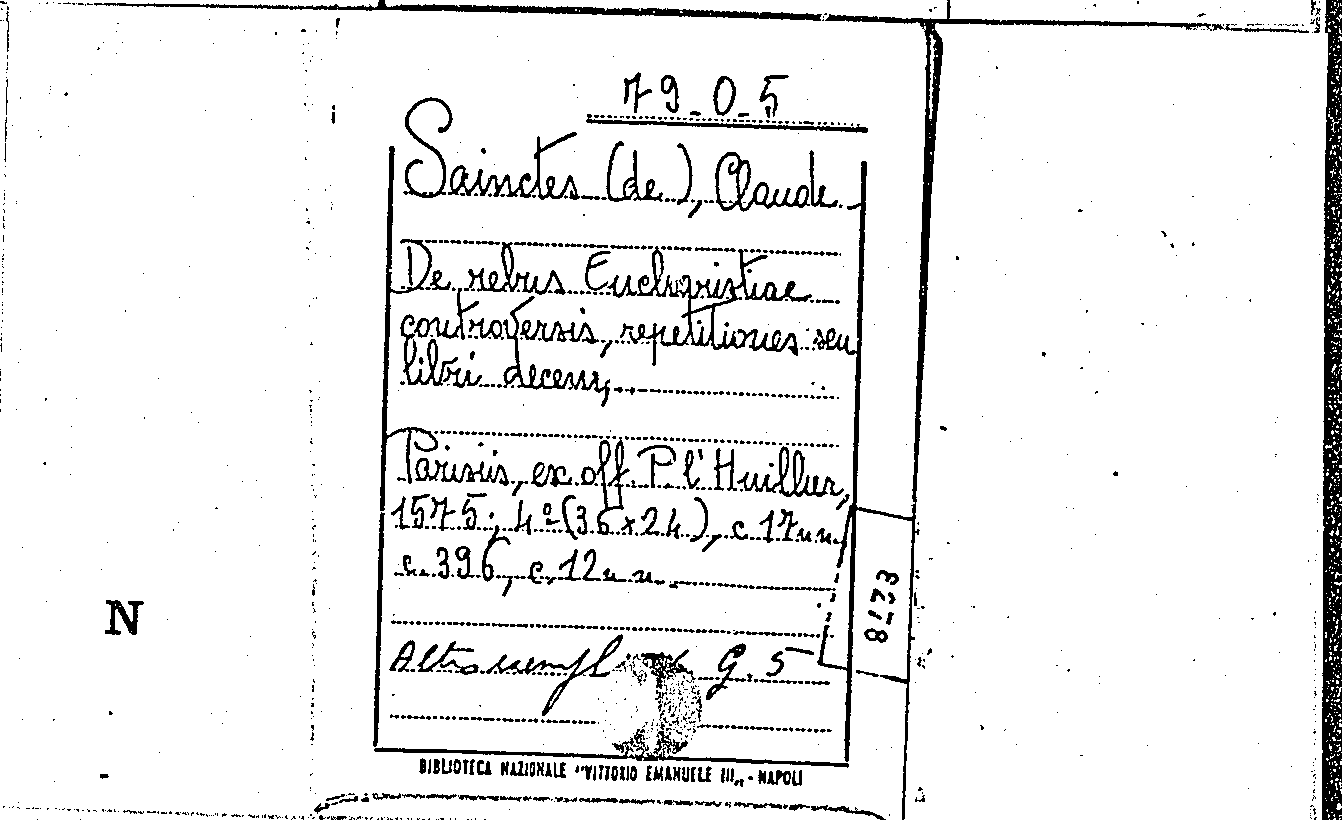 79-0-5
Sainctes (de), Claude
De rebus Eucharistiae
controversis, repetitiones seu
libri decem,..
Parisiis, ex off. P. l'Huillier,
1575; 4º (36x24), c.17 n.n.
c.396, c.12 n.n.
Altro esempl G.5
8773
N
BIBLIOTECA NAZIONALE "VITTORIO EMANUELE III„ - NAPOLI